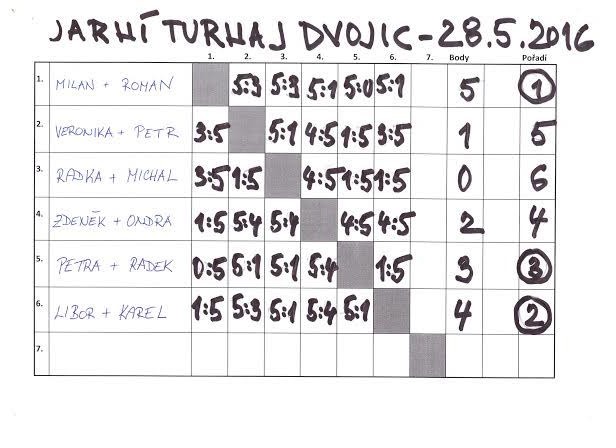 JARNÍ TURNAJ DVOJIC - 28.5.2016
1. 2. 3. 4. 5. 6. 7. Body Pořadí
1. MILAN + ROMAN 5:3 5:3 5:1 5:0 5:1 5 1
2. VERONIKA + PETR 3:5 5:1 4:5 1:5 3:5 1 5
3. RADKA + MICHAL 3:5 1:5 4:5 1:5 1:5 0 6
4. ZDENĚK + ONDRA 1:5 5:4 5:4 4:5 4:5 2 4
5. PETRA + RADEK 0:5 5:1 5:1 5:4 1:5 3 3
6. LIBOR + KAREL 1:5 5:3 5:1 5:4 5:1 4 2
7.